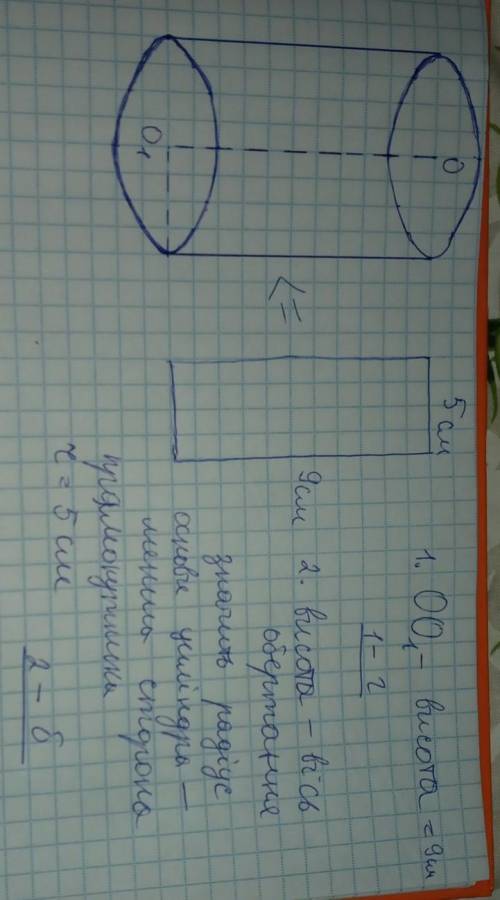 O
O₁
<=
5 см
9см
1. OO₁ – висота = 9см
1 – г
2. висота – вісь
обертання
значить радіус
основи циліндра –
менша сторона
прямокутника
r = 5 см
2 – б